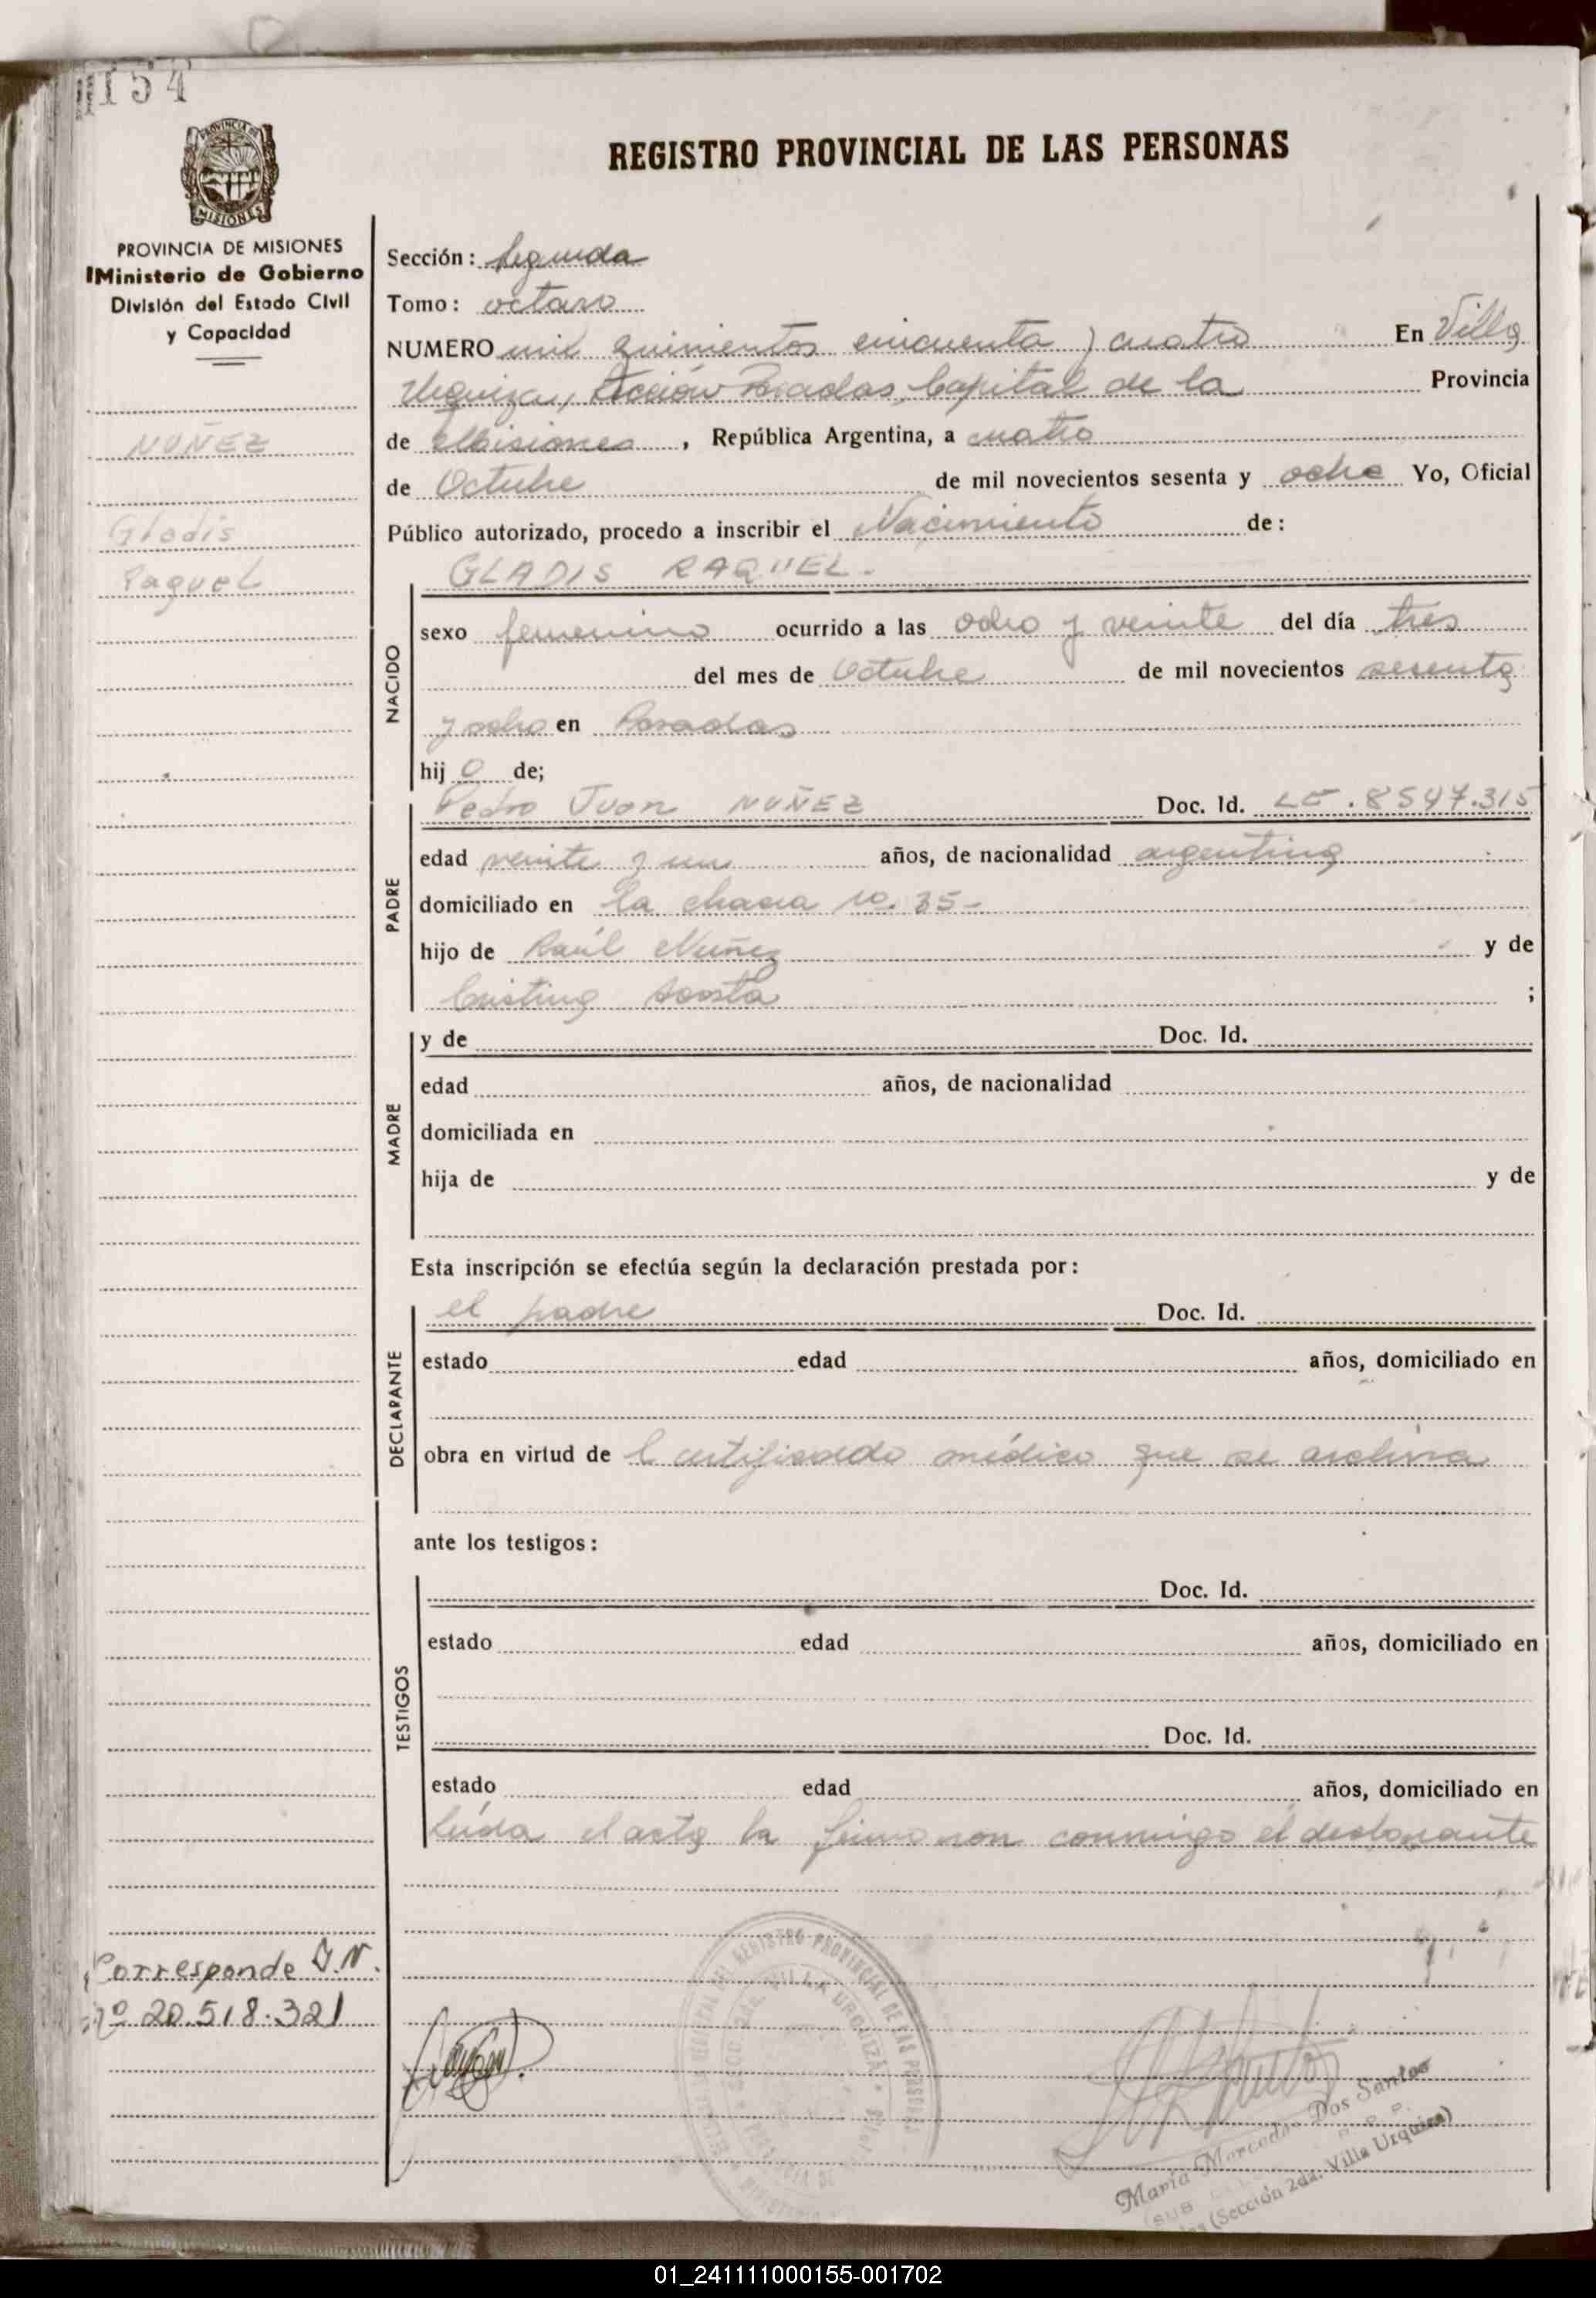 154
REGISTRO PROVINCIAL DE LAS PERSONAS
PROVINCIA DE
MISIONES
PROVINCIA DE MISIONES
Ministerio de Gobierno
División del Estado Civil
y Capacidad
NUÑEZ
Gladis
Raquel
Sección: Segunda
Tomo: octavo
NUMERO mil quinientos cincuenta y cuatro En Villa
Urquiza, Sección Posadas, Capital de la Provincia
de Misiones, República Argentina, a cuatro
de Octubre de mil novecientos sesenta y ocho Yo, Oficial
Público autorizado, procedo a inscribir el Nacimiento de:
GLADIS RAQUEL.
NACIDO
sexo femenino ocurrido a las ocho y veinte del día tres
del mes de Octubre de mil novecientos sesenta
y ocho en Posadas
hij a de;
PADRE
Pedro Juan NUÑEZ Doc. Id. LE. 8547.315
edad veinte y un años, de nacionalidad argentina
domiciliado en la chacra no. 35-
hijo de Raúl Nuñez y de
Cristina Acosta ;
MADRE
y de Doc. Id.
edad años, de nacionalidad
domiciliada en
hija de y de
Esta inscripción se efectúa según la declaración prestada por:
DECLARANTE
el padre Doc. Id.
estado edad años, domiciliado en
obra en virtud de l certificado médico que se archiva
ante los testigos:
TESTIGOS
Doc. Id.
estado edad años, domiciliado en
Doc. Id.
estado edad años, domiciliado en
Leída el acta la firma con conmigo el declarante
Corresponde D.N.
nº 20.518.321
REGISTRO PROVINCIAL DE LAS PERSONAS
VILLA URQUIZA
María Mercedes Dos Santos
(Sección 2da. Villa Urquiza)
01_241111000155-001702